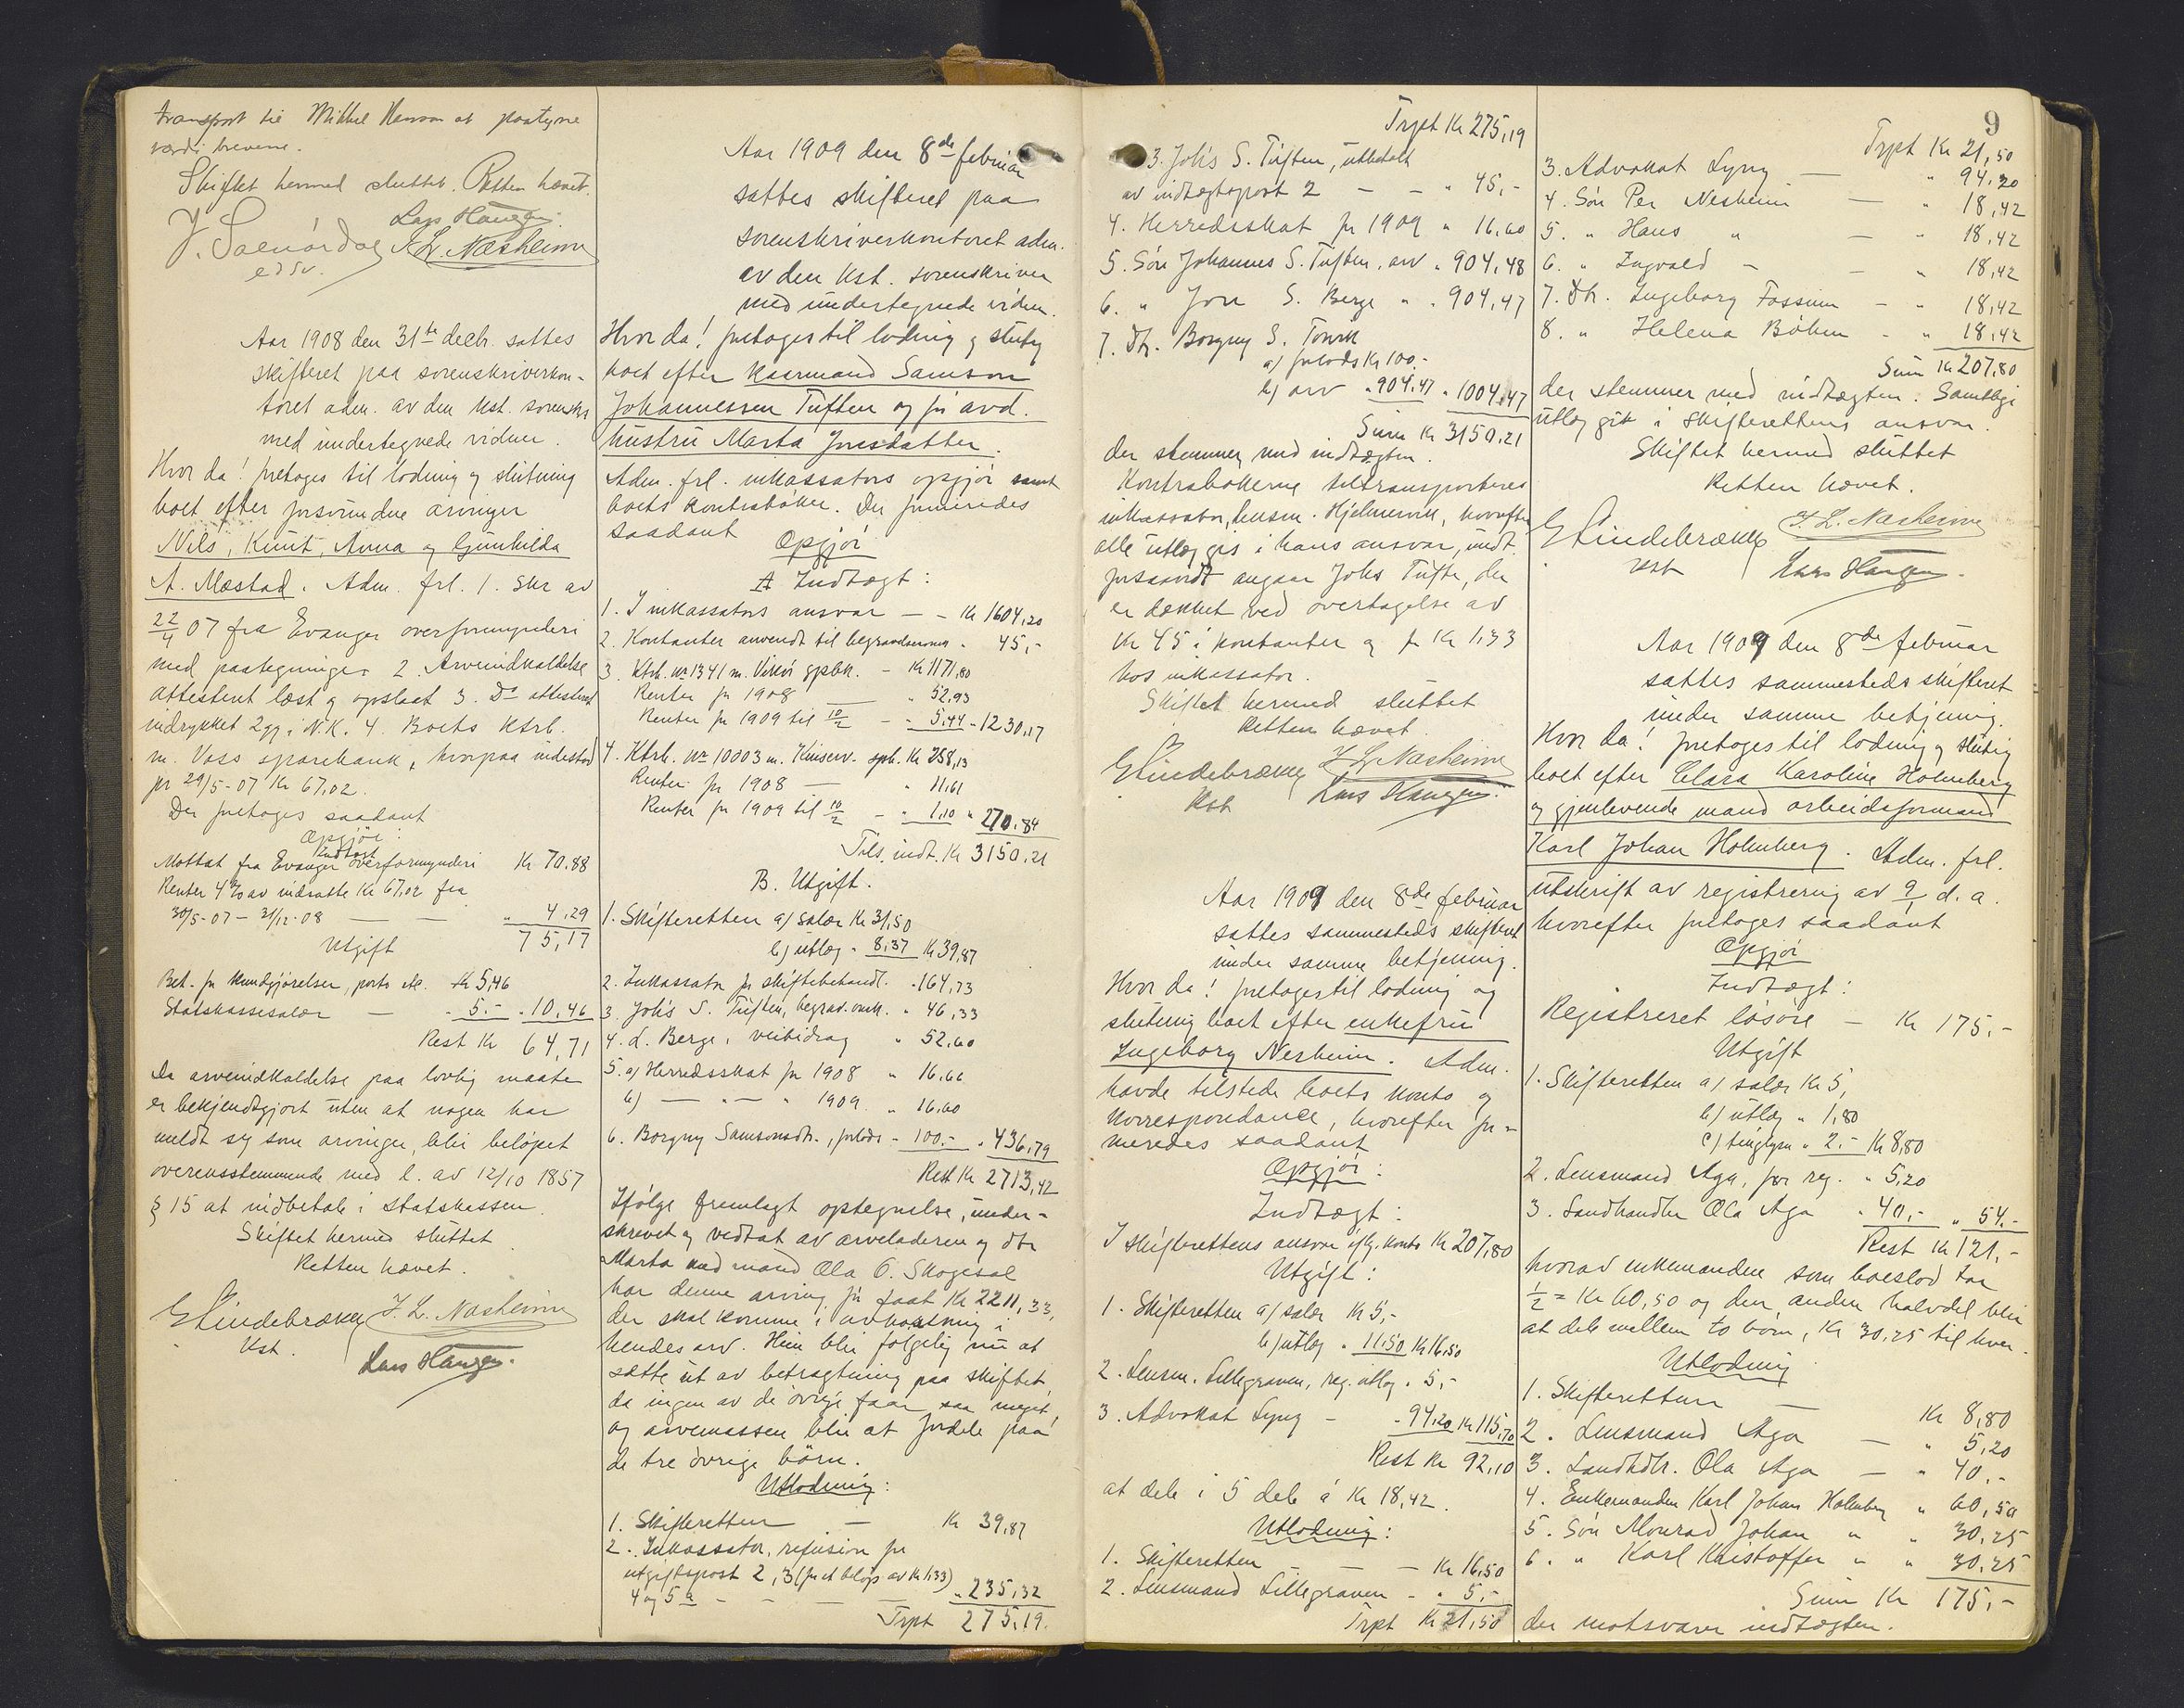 transport til Mikkel Hansen at paategne
værdibrevene.
Skiftet hermed sluttet. Retten hævet.
Lars Haugen.
J. L. Næsheim
edsv.
Aar 1908 den 31te decbr. sattes
skifteret paa sorenskriverkon-
toret adm. av den kst. sorenskr
med undertegnede vidner.
Hvor da! foretoges til lodning og slutning
boet efter forsvundne arvinger
Nils, Knut, Anna og Gunhilda
A. Mæstad. Adm. frl. 1. Skr av
22/4 07 fra Evanger overformynderi
med paategninger 2. Arveindkaldelse
attesteret læst og opslaat 3. Do attesteret
indrykket 2 gg i N.K. 4. Boets ktrb.
m. Voss sparebank, hvorpaa indestod
pr 29/5-07 Kr 67,02.
Der foretoges saadant
Opgjör:
Indtægt
Mottat fra Evanger overformynderi Kr 70.88
Renter 4 % av indsatte Kr 67,02 fra
30/5-07 - 31/12-08 — — " 4,29
75,17
Utgift
Bet. for kundgjörelser, porto etc. Kr 5,46
Statskassesalær — " 5.- " 10,46
Rest Kr 64,71
Da arveindkaldelse paa lovlig maate
er bekjendtgjort uten at nogen har
meldt sig som arvinger, blir belöpet
overensstemmende med l. av 12/10 1857
§ 15 at indbetale i statskassen.
Skiftet hermed sluttet
Retten hævet.
E Lindebrække J. L. Næsheim
Kst. Lars Haugen.
Aar 1909 den 8de februar
sattes skifteret paa
sorenskriverkontoret adm.
av den kst. sorenskriver
med undertegnede vidner.
Hvor da! foretoges til lodning og slutng
boet efter kaarmand Samson
Johannessen Tuften og før avd.
hustru Marta Jonsdatter.
Adm. frl. inkassators opgjör samt
boets kontrabøker. Der formeredes
saadant
Opgjör
A Indtægt:
1. I inkassators ansvar — - Kr 1604,20
2. Kontanter anvendt til begravelsesomk. " 45,-
3. Ktrb. No 1341 m. Vikör spbk. - Kr 1171,80
Renter for 1908 — " 52,93
Renter for 1909 til 10/2 - " 5,44 - 1230,17
4. Ktrb. No 10003 m. Kinserv. spb. Kr 258,13
Renter for 1908 — " 11,61
Renter for 1909 til 10/2 - " 1,10 " 270,84
Tils. indt. Kr 3150,21
B. Utgift.
1. Skifteretten a) salær Kr 31,50
b) utlæg " 8,37 Kr 39,87
2. Inkassator for skiftebehandl. " 164,73
3. Johs S. Tuften, begrav. omk. " 46,33
4. L. Berge, veibidrag " 52,60
5. a) Herredsskat for 1908 " 16,66
b) — " — " 1909 " 16,60
6. Borgny Samsonsdtr., forlods - 100.- " 436,79
Rest Kr 2713,42
Ifölge fremlagt optegnelse, under-
skrevet og vedtat av arveladeren og dtr
Marta med mand Ola O. Skogesal
har denne arving jo faat Kr 2211,33,
der skal komme i avkortning i
hendes arv. Hun blir følgelig nu at
sætte ut av betragtning paa skiftet,
da ingen av de övrige faar saa meget,
og arvemassen blir at fordele paa
de tre övrige börn.
Utlodning:
1. Skifteretten — Kr 39,87
2. Inkassator, refusion for
utgiftspost 2, 3 (for et beløp av Kr 1,33)
4 og 5 a - - — — " 235,32
Trpt 275,19.
Trpt Kr 275,19
3. Johs S. Tuften, utbetalt
av indtægtspost 2 - - " 45,-
4. Herredsskat for 1909 " 16,60
5. Sön Johannes S. Tuften, arv " 904,48
6. " Jon S. Berge " " 904,47
7. Dtr. Borgny S. Torvik
a) forlods Kr 100.-
b) arv " 904,47 " 1004,47
Sum Kr 3150,21
der stemmer med indtægten.
Kontrabøkerne tiltransporteres
inkassator, lensm. Hjelmervik, hvorefter
alle utlæg gis i hans ansvar, undt.
forsaavidt angaar Johs Tufte, der
er dækket ved overtagelse av
Kr 45 i kontanter og for Kr 1,33
hos inkassator.
Skiftet hermed sluttet
Retten hævet.
E Lindebrække J. L. Næsheim
Kst Lars Haugen.
Aar 1909 den 8de februar
sattes sammesteds skifteret
under samme betjening.
Hvor da! foretoges til lodning og
slutning boet efter enkefru
Ingeborg Nesheim. Adm.
havde tilstede boets konto og
korrespondance, hvorefter for-
meredes saadant
Opgjör:
Indtægt:
I skifterettens ansvar iflg. konto Kr 207,80
Utgift:
1. Skifteretten a) salær Kr 5,-
b) utlæg " 11,50 Kr 16,50
2. Lensm. Lillegraven, reg. utlæg " 5,-
3. Advokat Lyng - " 94,20 Kr 115,70
Rest Kr 92,10
at dele i 5 dele á Kr 18,42.
Utlodning:
1. Skifteretten — — Kr 16,50
2. Lensmand Lillegraven - " 5,-
Trpt Kr 21,50
9
Trpt Kr 21,50
3. Advokat Lyng — " 94,20
4. Sön Per Nesheim — " 18,42
5. " Hans " — " 18,42
6. " Ingvald - — " 18,42
7. Dtr. Ingeborg Fossum - " 18,42
8. " Helena Böhm - " 18,42
Sum Kr 207,80
der stemmer med indtægten. Samtlige
utlæg git i skifterettens ansvar.
Skiftet hermed sluttet
Retten hævet.
E Lindebrække J. L. Næsheim
Kst Lars Haugen.
Aar 1909 den 8de februar
sattes sammesteds skifteret
under samme betjening.
Hvor da! foretoges til lodning og slutng
boet efter Clara Karoline Holmberg
og gjenlevende mand arbeidsformand
Karl Johan Holmberg. Adm. frl.
utskrift av registrering av 9/1 d. a.
hvorefter foretoges saadant
Opgjör
Indtægt:
Registreret lösöre - Kr 175.-
Utgift
1. Skifteretten a) salær Kr 5,
b) utlæg " 1,80
c) tinglysn " 2.- Kr 8,80
2. Lensmand Aga, for reg. " 5,20
3. Landhandler Ola Aga " 40,- " 54.-
Rest Kr 121,-
hvorav enkemanden som boeslod tar
1/2 = Kr 60,50 og den anden halvdel blir
at dele mellem to börn, Kr 30,25 til hver.
Utlodning
1. Skifteretten — Kr 8,80
2. Lensmand Aga — " 5,20
3. Landhdlr. Ola Aga — " 40.-
4. Enkemanden Karl Johan Holmberg " 60,50
5. Sön Monrad Johan " " 30,25
6. " Karl Kristoffer " " 30,25
Sum Kr 175,-
der motsvarer indtægten.